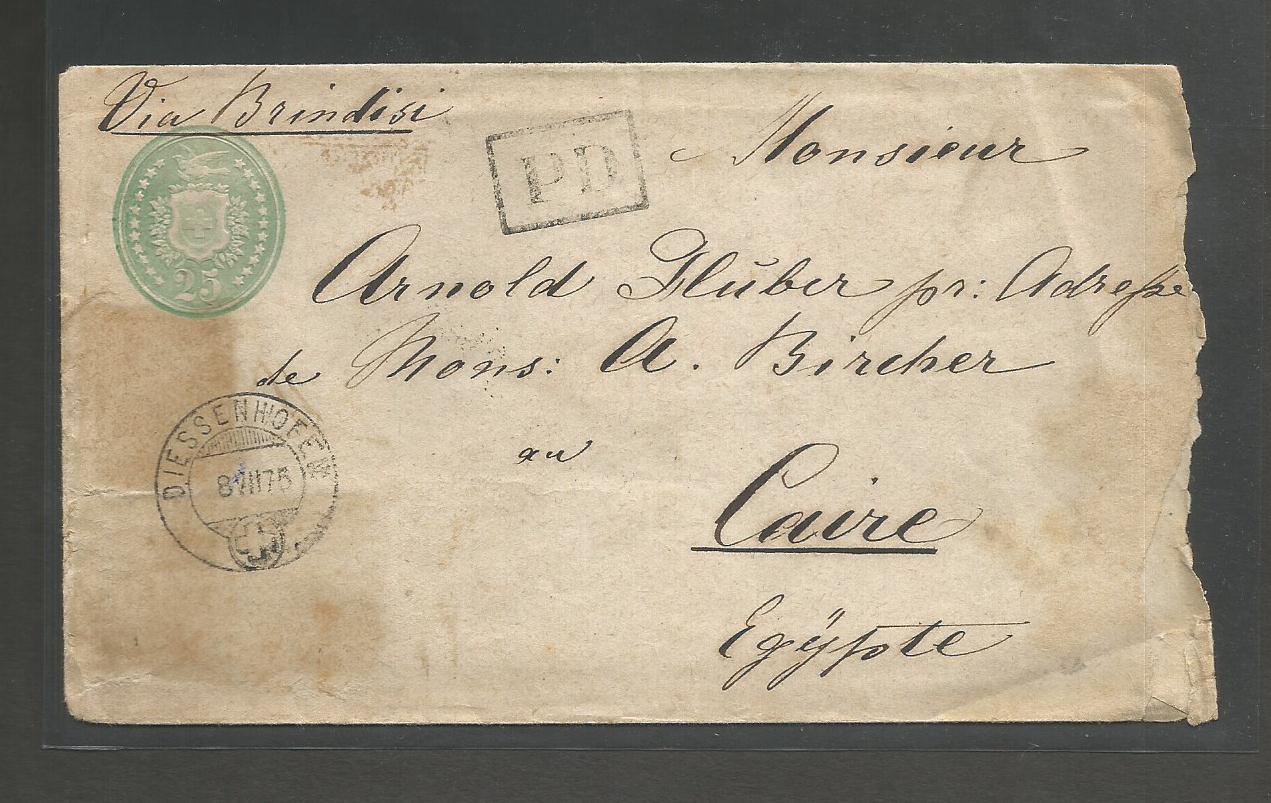 Via Brindisi
PD
25
Monsieur
Arnold Huber pr: Adresse
de Mons: A. Bircher
au
Caire
Egÿpte
DIESSENHOFEN